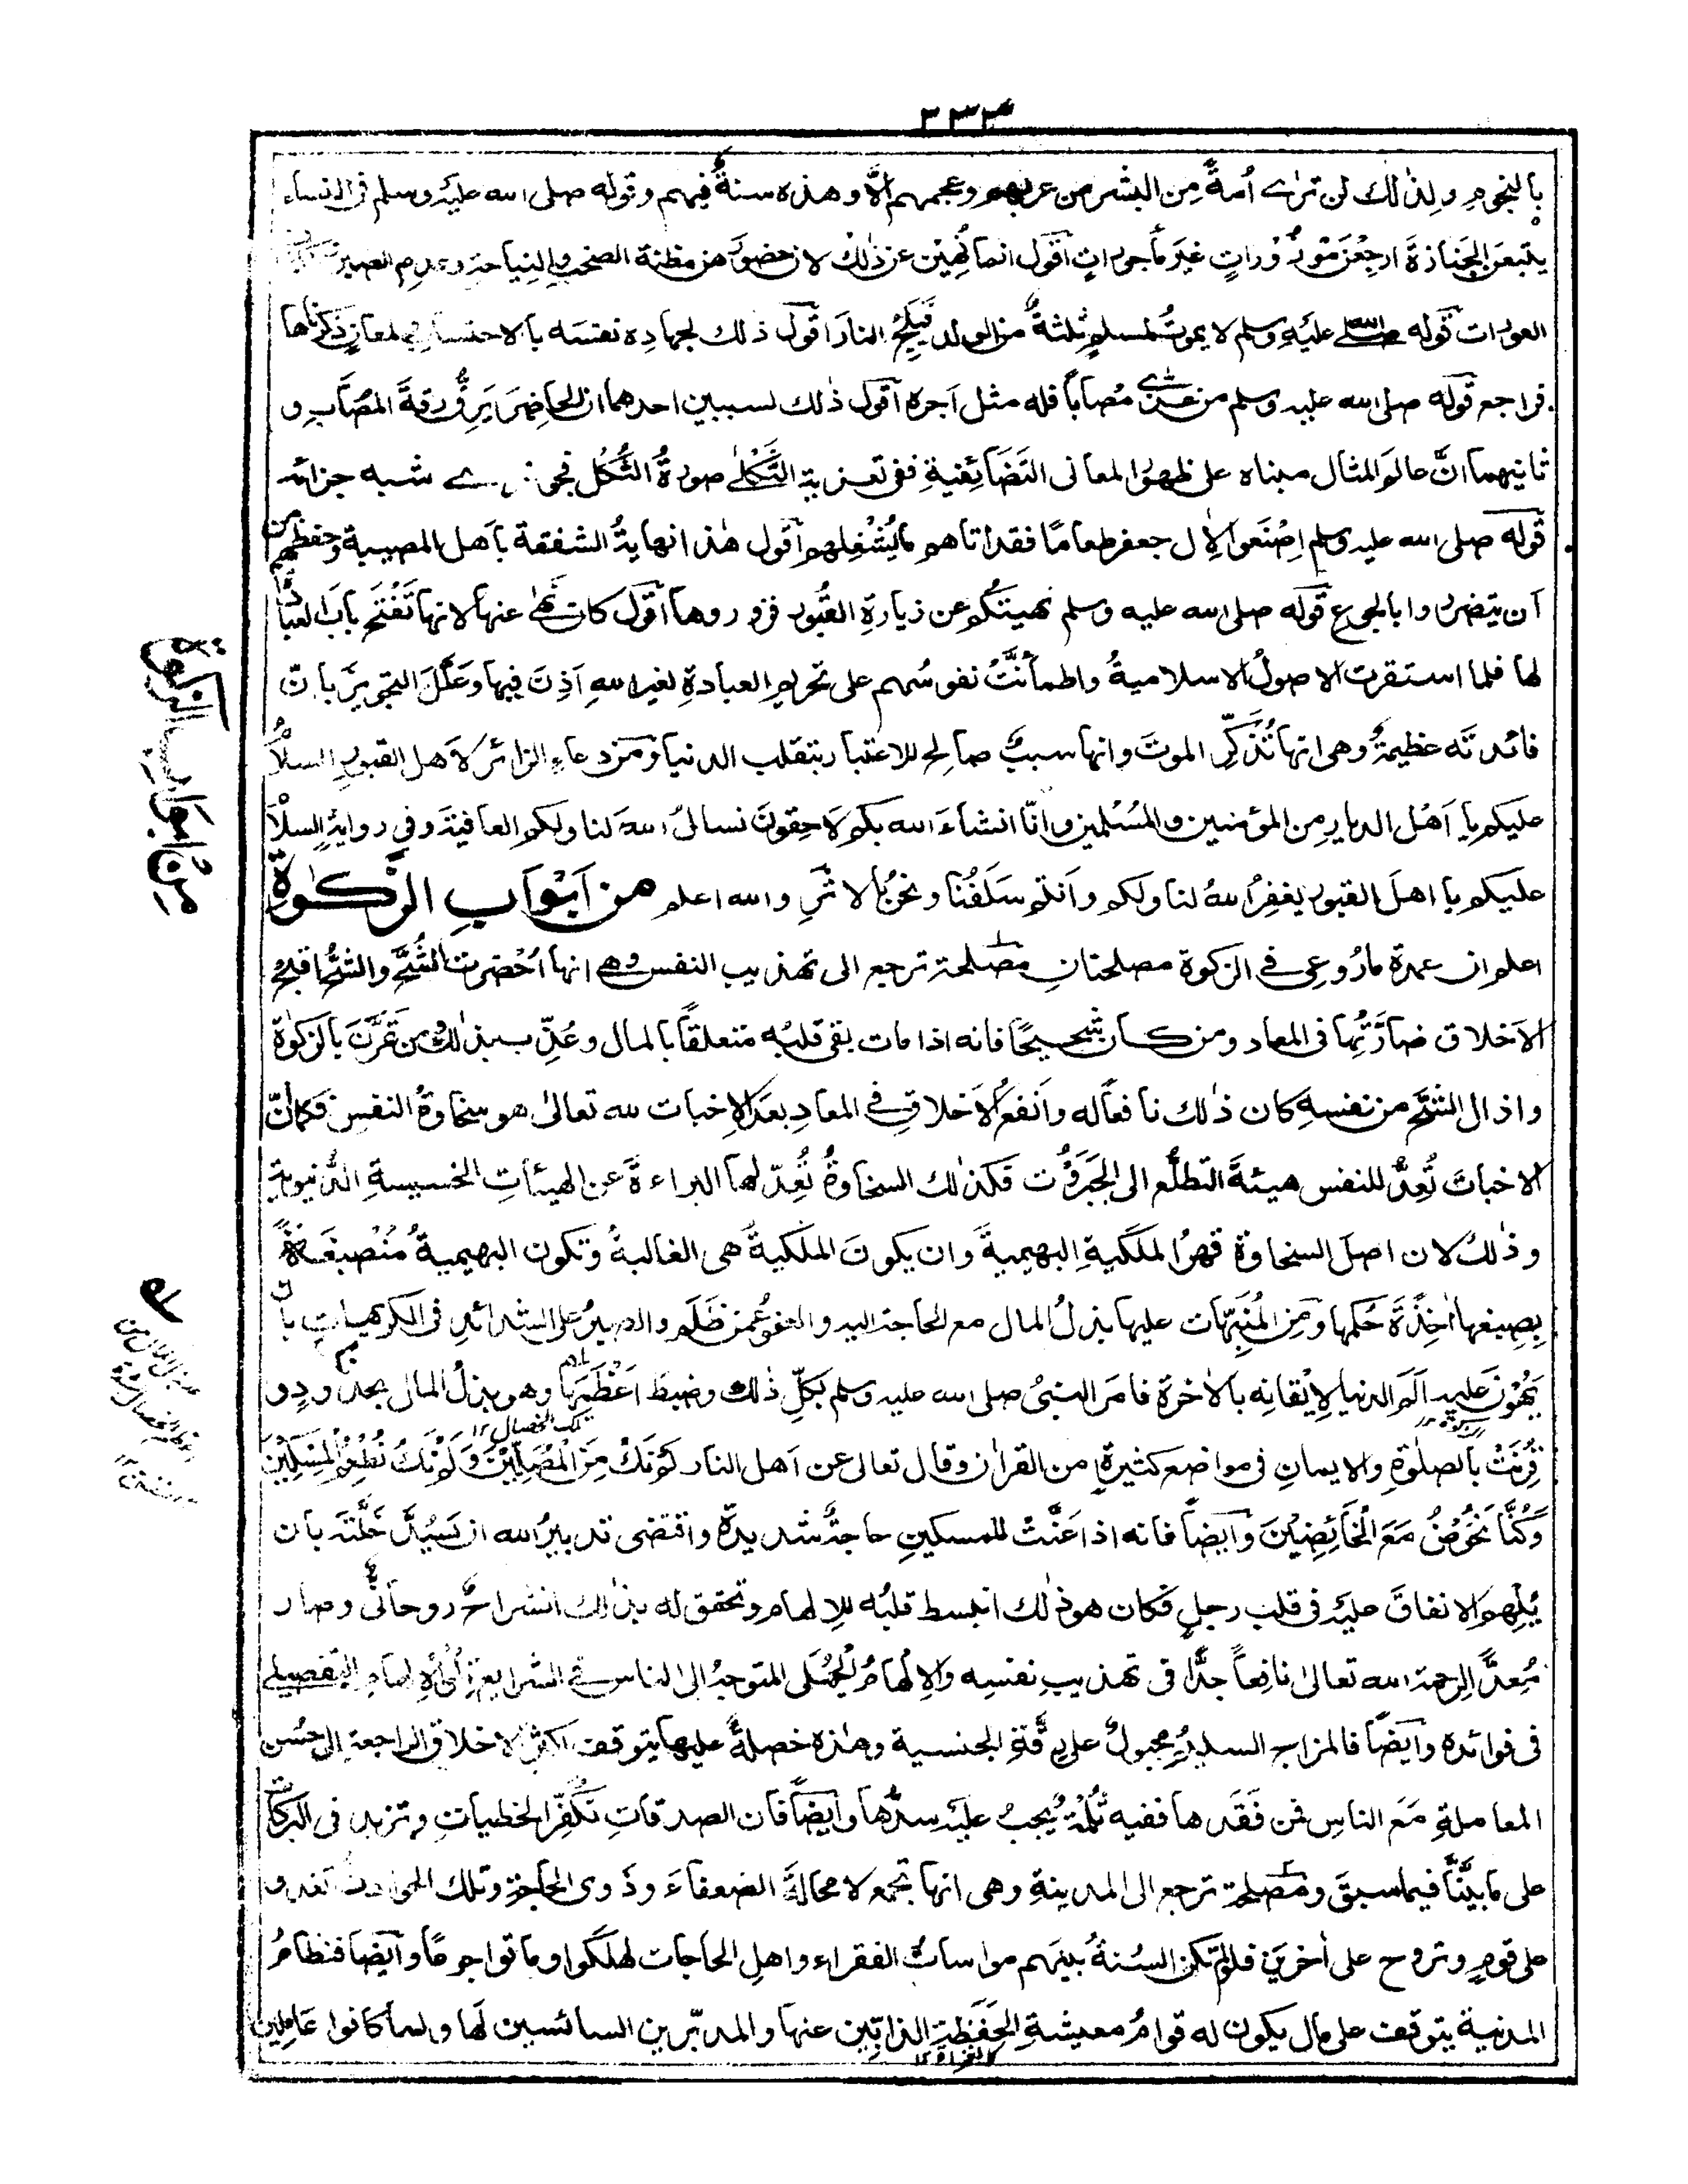 ٣٣٣
بالنجوم ولذٰلك لن ترٰے اُمةً مِن البشر من عربهم وعجمهم الّا وهذه سنةٌ فيهم وقوله صلى الله عليه وسلم فى النساء
يتبعنَ الجَنازةَ ارجعْنَ مَوْزُوْراتٍ غيرَ مأجوراتٍ اقول انما نُهِيْن عن ذٰلك لان حضورَهن مظنة الصخب والنياحة وعدم الصبر
العورات قوله صلے الله عليه وسلم لا يموتُ لمسلمٍ ثلثةٌ من الولد فيَلِجُ النارَ اقول ذلك لجهادِه نفسَه بالاحتساب لمعانٍ ذكرناها
فراجع قوله صلى الله عليه وسلم من عزّٰے مُصاباً فله مثل اَجره اَقول ذٰلك لسببين احدهما ان الحاضِرَ يَرِقُّ رقةَ المصَاب و
ثانيهما انَّ عالَم المثال مبناه على ظهورِ المعانى التَضَائفيةِ ففى تعزية الثَّكْلٰے صورةُ الثُّكُل فجوزے شبه جزائه
قوله صلى الله عليه وسلم اِصْنَعوا لِاٰل جعفر طعامًا فقد اتاهم ما يُشْغِلهم اَقول هٰذا نهايةُ الشفقة باَهل المصيبة وحفظهم من
اَن يتضرروا بالجوع قوله صلى الله عليه وسلم نهيتكم عن زيارةِ القُبور فزوروها اَقول كان نَهٰى عنها لانها تَفْتَح باَبَ العبادة
لها فلما استقرت الاصولُ الاسلاميةُ واطمأنَّتْ نفوسُهم على تحريم العبادةِ لغير اللهِ اَذِنَ فيها وعَلَّلَ التجويزَ بانّ
فائدتَه عظيمةٌ وهى انها تُذَكِّر الموتَ وانها سببٌ صالح للاعتبار بتقلب الدنيا ومن دعاءِ الزائر لاَهل القبور السلامُ
عليكم يا اَهْل الديارِ من المؤمنين والمُسْلمين وانّا انشاءَ الله بكم لاَحِقونَ نسالُ اللهَ لنا ولكم العافيةَ وفى روايةٍ السلامُ
عليكم يا اهلَ القبورِ يغفِرُ اللهُ لنا ولكم واَنتم سَلَفُنا ونحنُ بالاثَرِ والله اعلم من اَبْوَابِ الزَّكٰوةِ
اعلم ان عمدة مارُوعِى فى الزكوة مصلحتانِ مصلحة ترجع الى تهذيب النفس وهے انها اُحْضرت الشُّحَّ والشُّحُّ اقبحُ
الاَخلاق ضارَّتُها فى المعاد ومن كان شَحيحًا فانه اذا مات بقى قلبُه متعلقًا بالمال وعُذِّب بذٰلك ومن تَمَرَّنَ بالزكٰوةِ
واذال الشُحَّ من نفسِهِ كان ذٰلك نافعًا له واَنفعُ الاَخلاقِ فى المعادِ بعدَ الاِخبات لله تعالٰى هو سخاوةُ النفس فكما انّ
الاخباتَ تُعِدُّ للنفس هيئةَ التطلُّع الى الجَبَرُوْت فكذٰلك السخاوةُ تُعِدّ لها البراءةَ عن الهيئاتِ الخسيسةِ الدُّنيويةِ
وذٰلك لان اصل السخاوة قهرُ الملَكيةِ البهيميةَ وان يكونَ الملكيةُ هى الغالبةُ وتكون البهيميةُ مُنْصبغَةً
بصِبغِها اٰخِذَةً حُكمَها ومن المُنَبِّهات عليها بذلُ المال مع الحاجة اليه والعفوُ عمن ظَلَم والصبرُ على الشدائدِ فى الكريهات بان
يَهُوْنَ عليه اَلَم الدنيا لِاِيْقانِه بالاٰخرة فامَر النبىُّ صلى الله عليه وسلم بكلّ ذٰلك وضبطَ اَعْظَمَها وهو بذلُ المال بحدودٍ و
تلك الخصال ١٢
قُرِنَتْ بالصلوةِ والايمانِ فى مواضعَ كثيرةٍ من القراٰن وقال تعالى عن اَهل النار لَمْ نَكُ مِنَ الْمُصَلِّيْنَ وَلَمْ نَكُ نُطْعِمُ الْمِسْكِيْنَ
وَكُنَّا نَخُوْضُ مَعَ الْخَائِضِيْنَ وايضًا فانه اذا عَنَّتْ للمسكينِ حاجةٌ شديدةٌ واقتضى تدبيرُ الله ان يَسُدَّ خَلَّتَه بان
يُلْهِمَ الانفاقَ عليه فى قلب رجلٍ فكان هو ذٰلك انبسط قلبُه للالهام وتحقق له بذٰلك انشراحٌ روحانىٌّ وصار
مُعِدًّا لرحمة الله تعالٰى نافعًا جدًّا فى تهذيبِ نفسِه والاِلْهامُ الجُمَلى المتوجهُ الى الناس فى الشرائع تِلْوُ الالهام التفصيلے
فى فوائده وايضًا فالمزاج السليمُ مجبولٌ على رِقَّةِ الجنسية وهٰذه خصلةٌ عليها يتوقف اكثرُ الاخلاق الراجعة الى حُسن
المعاملةِ مَعَ الناسِ فمن فَقَدها ففيه ثُلْمةٌ يجبُ عليه سدُّها وايضًا فان الصدقاتِ تُكَفِّرُ الخطيات وتزيد فى البركات
على ما بيَّنَّا فيما سبق ومصلحة ترجع الى المدينةِ وهى انها تجمع لا محالةَ الضعفاءَ وذَوى الحاجةِ وتلك الحوادث تغدو
على قومٍ وتروح على اٰخرين فلو لم تكن السُنةُ بينَهم مواساةَ الفقراء واهلِ الحاجات لهلَكوا وماتوا جوعًا وايضًا فنظامُ
المدنية يتوقف على مال يكون له قوامُ معيشةِ الحَفَظةِ الذابِّين عنها والمدبّرين السائسين لَها ولما كانوا عَامِلين
كالغزاة ١٢
مِنْ ابواب الزكوة